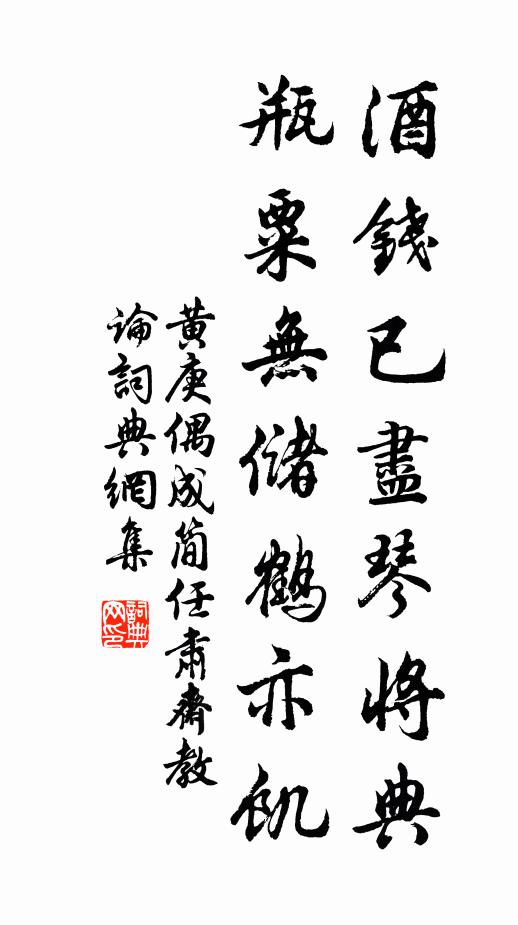 酒錢已盡琴將典
瓶粟無儲鶴亦飢
黃庚偶成簡任肅齋教
論詞典網集
詞典網印